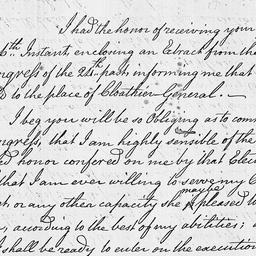 I had the honor of receiving your
6th Instant, enclosing an Extract from the
ongress of the 24th past, informing me that
D to the place of Cloathier General. —
I beg you will be so Obliging as to com
ongress, that I am highly sensible of the
d honor confered on me by that Elec
that I am ever willing to serve my C
or any other capacity she maybe pleased
, according to the best of my abilities;
shall be ready to enter on the execution